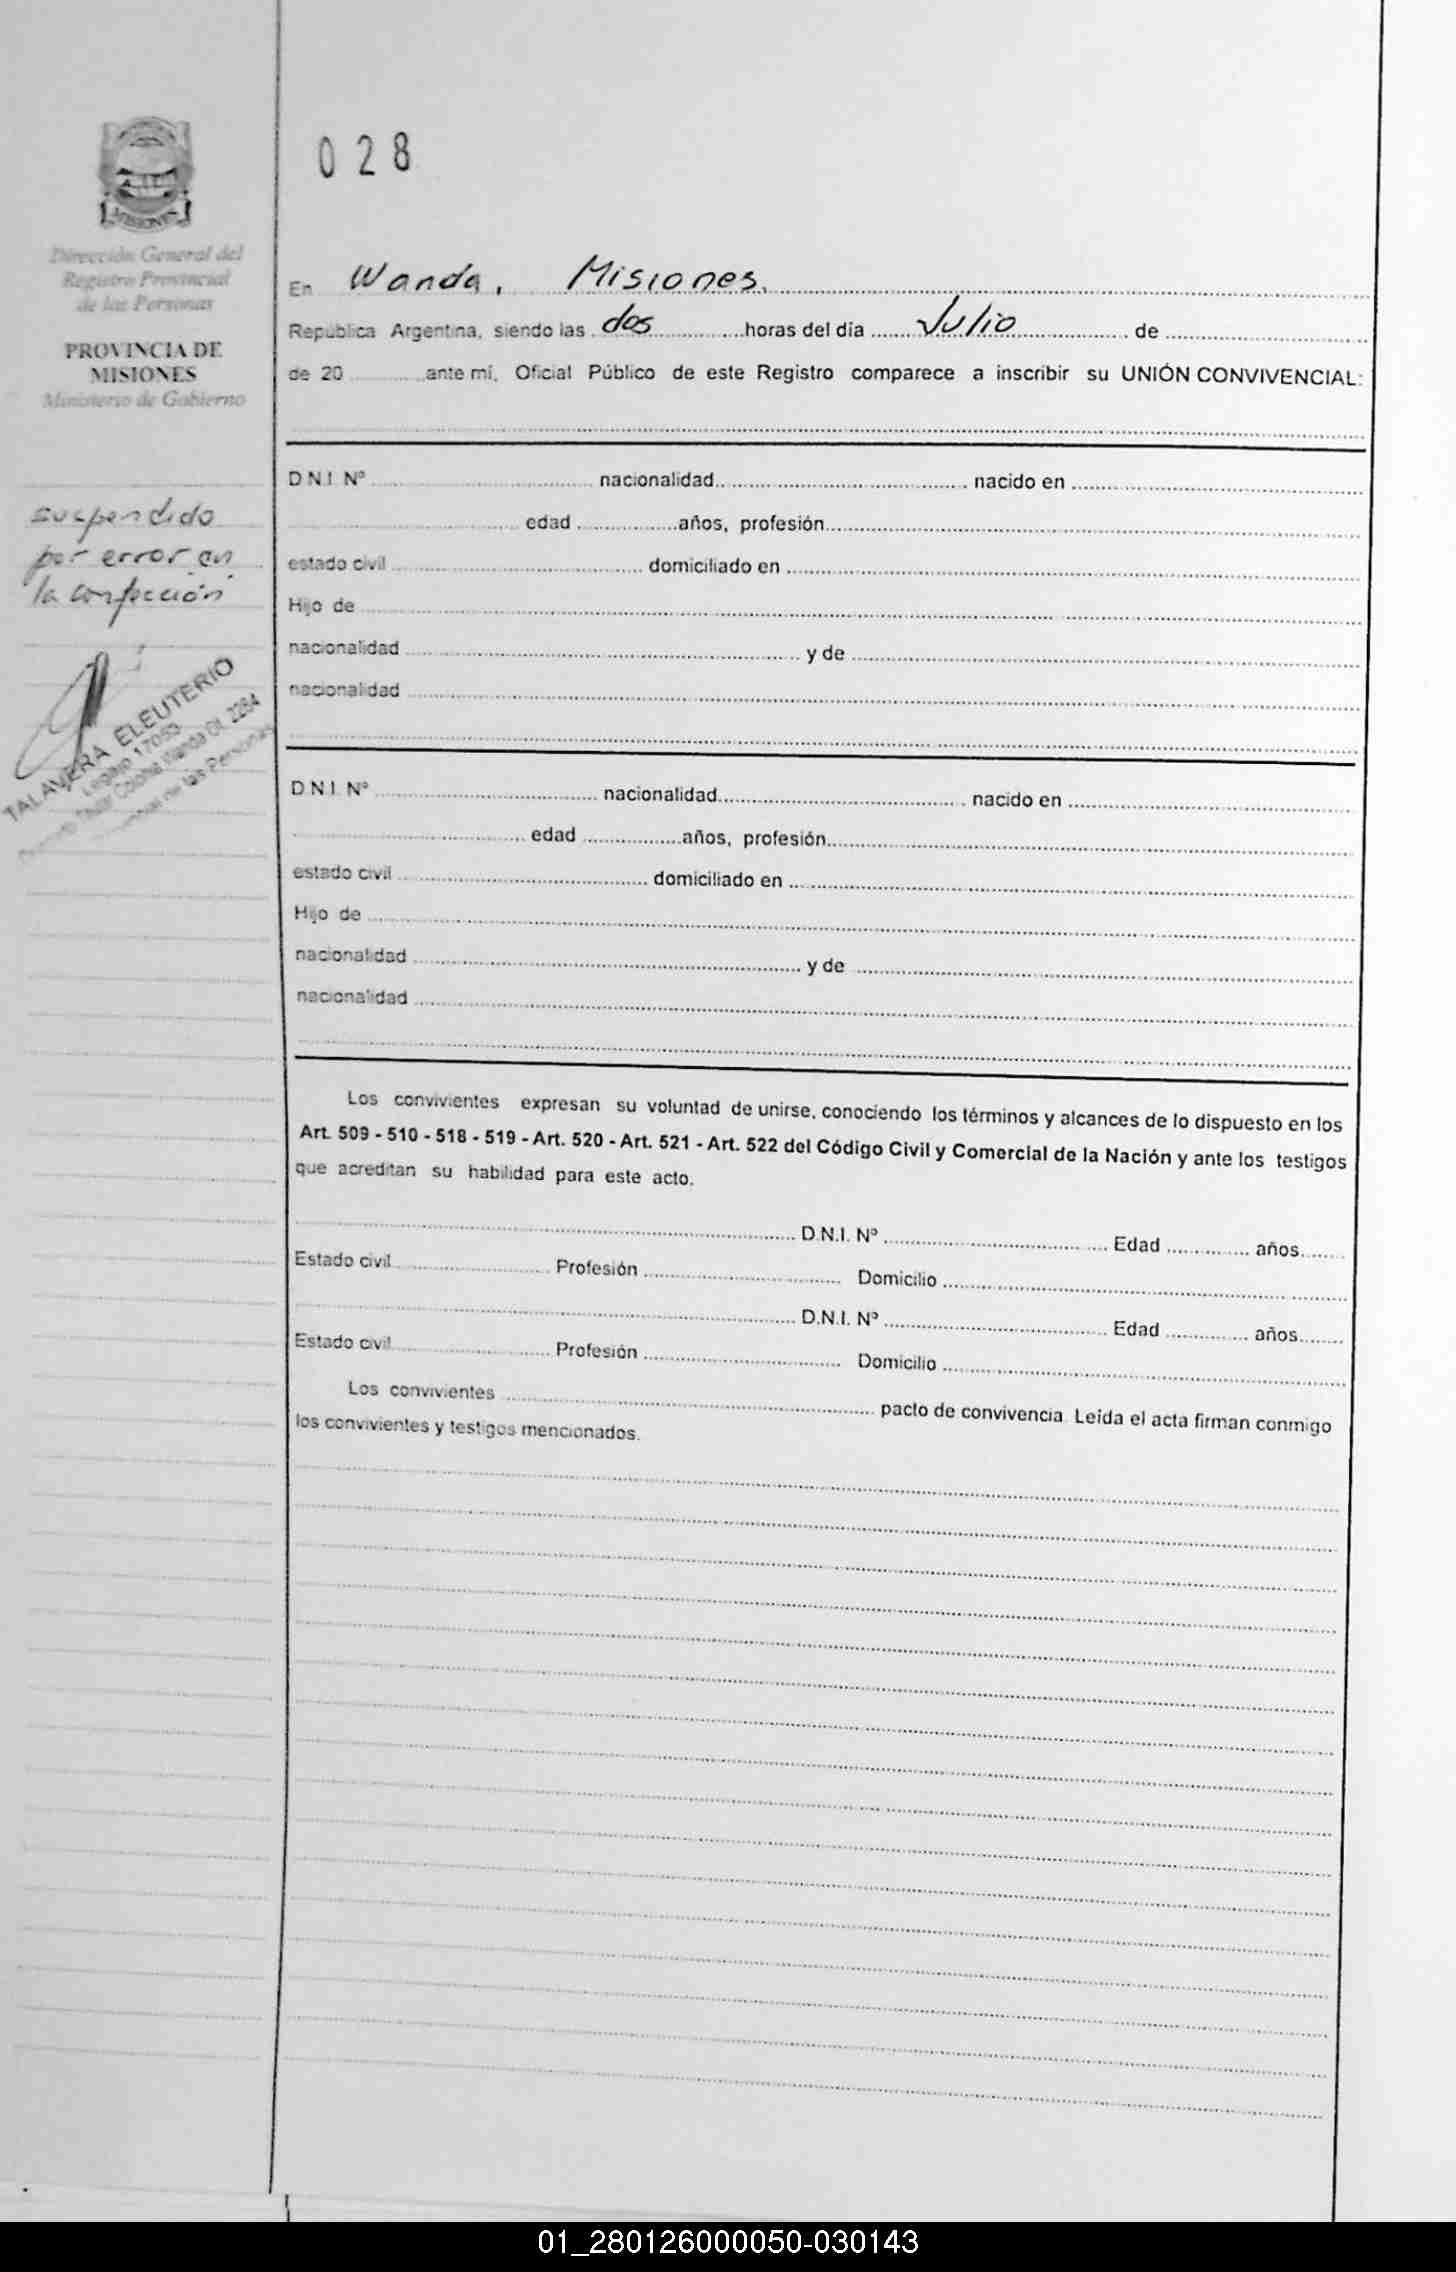 028
MISIONES
Dirección General del
Registro Provincial
de las Personas
PROVINCIA DE
MISIONES
Ministerio de Gobierno
En Wanda, Misiones.
República Argentina, siendo las dos horas del día Julio de
de 20 ante mí, Oficial Público de este Registro comparece a inscribir su UNIÓN CONVIVENCIAL:
suspendido
por error en
la confección
TALAVERA ELEUTERIO
Legajo 17053
D.N.I. Nº nacionalidad nacido en
edad años, profesión
estado civil domiciliado en
Hijo de
nacionalidad y de
nacionalidad
D.N.I. Nº nacionalidad nacido en
edad años, profesión
estado civil domiciliado en
Hijo de
nacionalidad y de
nacionalidad
Los convivientes expresan su voluntad de unirse, conociendo los términos y alcances de lo dispuesto en los
Art. 509 - 510 - 518 - 519 - Art. 520 - Art. 521 - Art. 522 del Código Civil y Comercial de la Nación y ante los testigos
que acreditan su habilidad para este acto.
D.N.I. Nº Edad años
Estado civil Profesión Domicilio
D.N.I. Nº Edad años
Estado civil Profesión Domicilio
Los convivientes pacto de convivencia. Leída el acta firman conmigo
los convivientes y testigos mencionados.
01_280126000050-030143